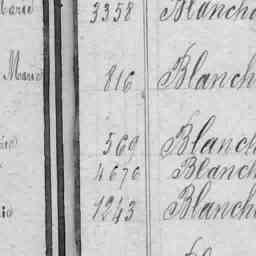 Marie 3358 Blanch
Marie 816 Blanch
569 Blanch
4676 Blanch
1243 Blanch